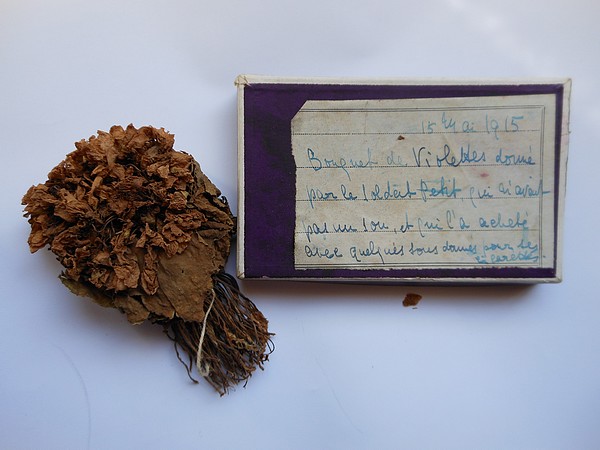 15 Mai 1915
Bouquet de Violettes donné
par le soldat Petit qui n'avait
pas un sou, et qui l'a acheté
avec quelques sous donnés pour des
cigarettes.